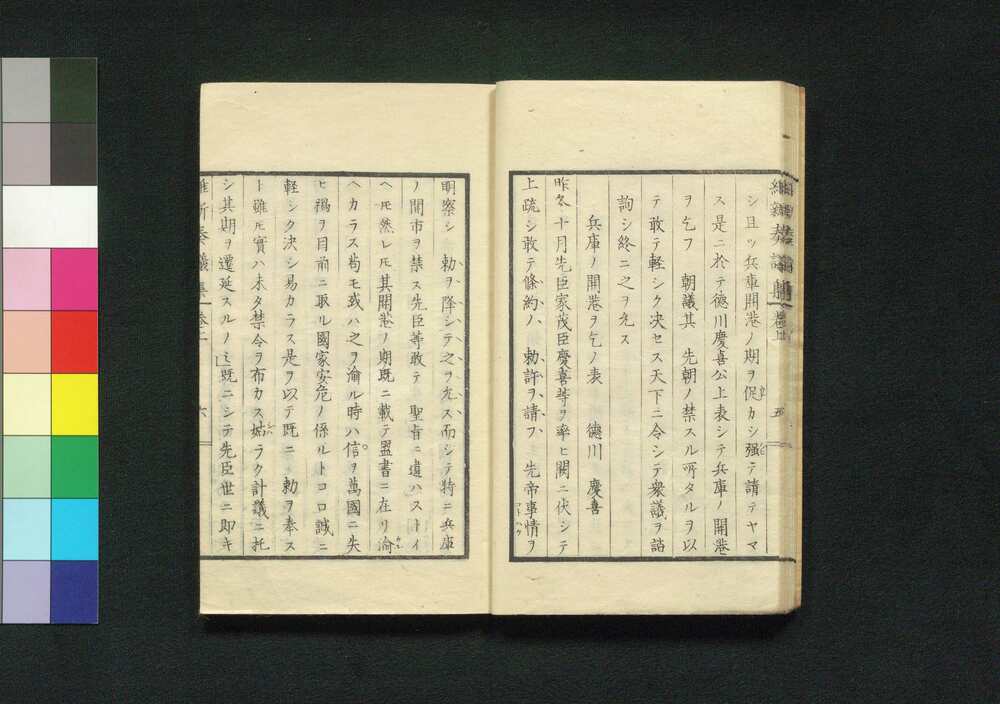 維新奏議集 卷上 五
シ且ツ兵庫開港ノ期ヲ促カシ强テ請テヤマ
ス是ニ於テ德川慶喜公上表シテ兵庫ノ開港
ヲ乞フ 朝議其 先朝ノ禁スル所タルヲ以
テ敢テ軽シク决セス天下ニ令シテ衆議ヲ諮
詢シ終ニ之ヲ允ス
兵庫ノ開港ヲ乞ノ表 德川 慶喜
昨冬十月先臣家茂臣慶喜等ヲ率ヒ闕ニ伏シテ
上疏シ敢テ條約ノ 勅許ヲ請フ 先帝事情ヲ
明察シ 勅ヲ降シテ之ヲ允ス而シテ特ニ兵庫
ノ開市ヲ禁ス先臣等敢テ 聖旨ニ違ハストイ
ヘ𪜈然レ𪜈其開港ノ期既ニ載テ盟書ニ在リ渝
ヘカラス苟モ或ハ之ヲ渝ル時ハ信ヲ萬國ニ失
ヒ禍ヲ目前ニ取ル國家安危ノ係ルトコロ誠ニ
軽シク決シ易カラス是ヲ以テ既ニ 勅ヲ奉ス
ト雖𪜈實ハ未タ禁令ヲ布カス姑ラク計議ニ托
シ其期ヲ遷延スルノミ」既ニシテ先臣世ニ即キ
維新奏議集 卷上 六